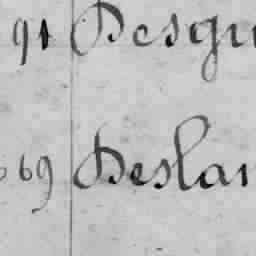 91 Desgu
69 Deslan